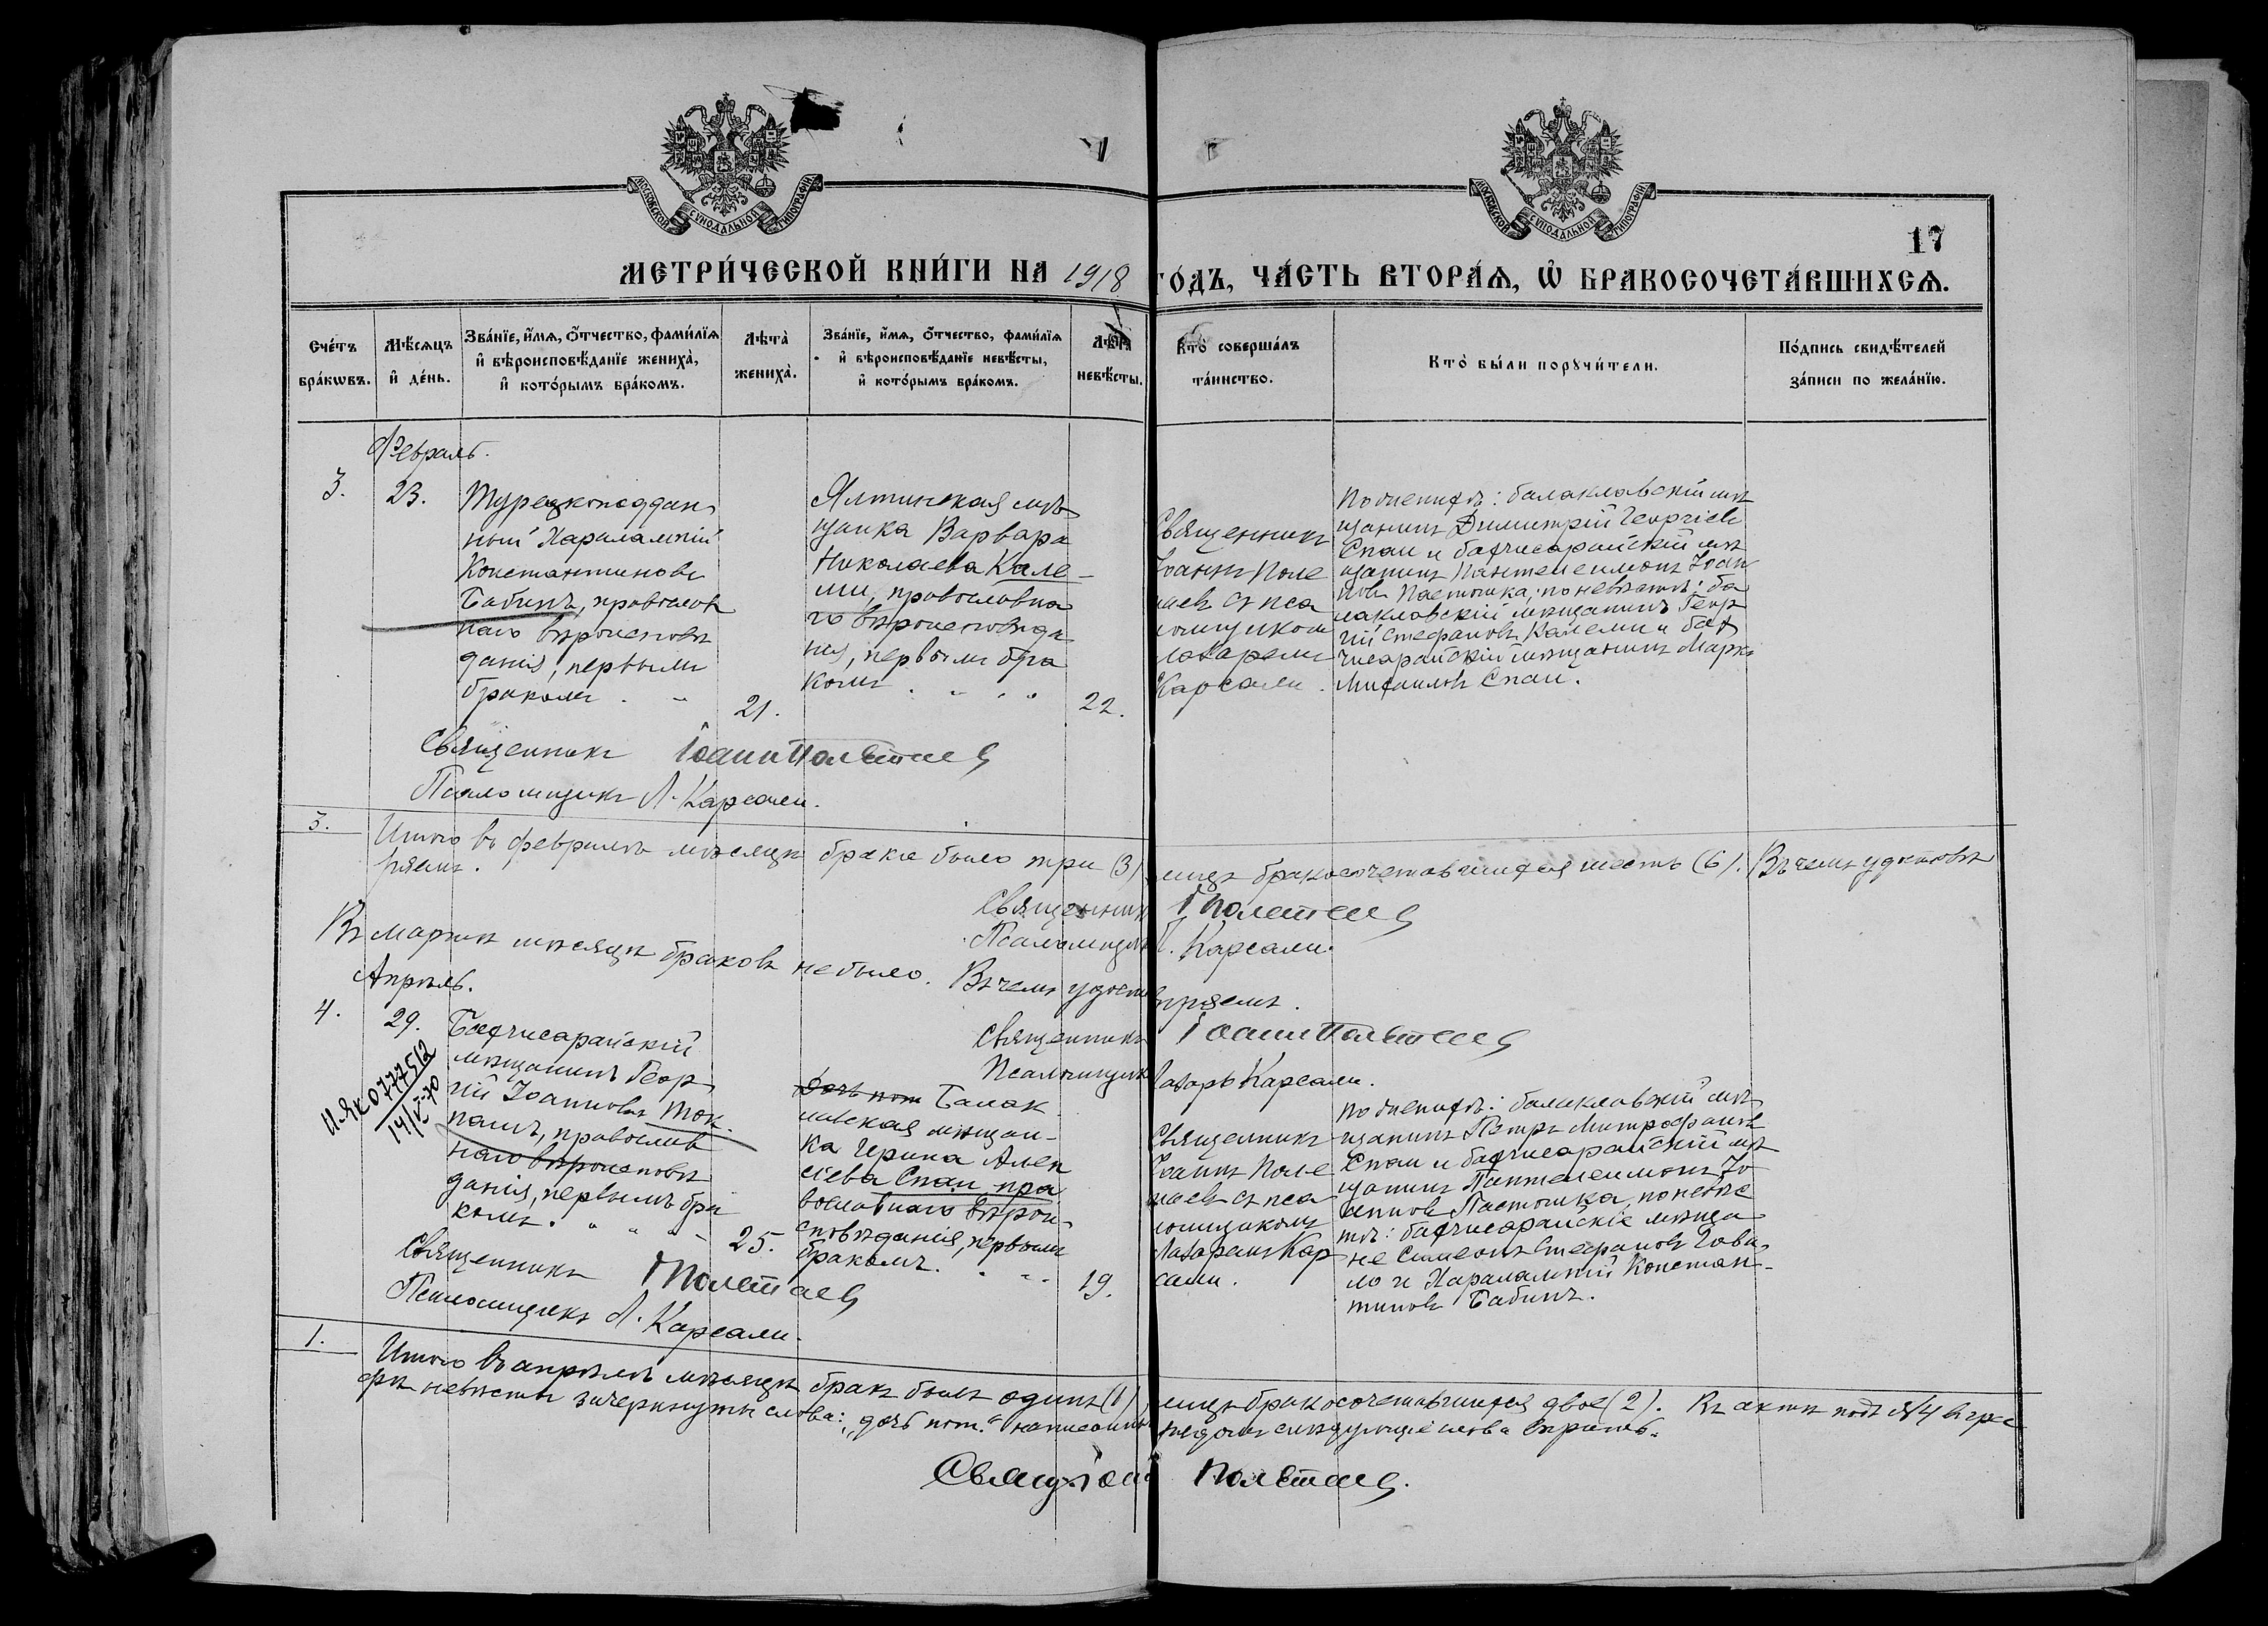 МОСКОВСКОЙ СѴНОДАЛЬНОЙ ТИПОГРАФІИ
МОСКОВСКОЙ СѴНОДАЛЬНОЙ ТИПОГРАФІИ
17
МЕТРИ́ЧЕСКОЙ КНИ́ГИ НА 1918 ГО́ДЪ, ЧА́СТЬ ВТОРА́Ѧ, Ѽ БРАКОСОЧЕТА́ВШИХСѦ.
Сче́тъ
бра́кѡвъ.
Мѣ́сѧцъ
и҆ де́нь.
Зва́нїе, и҆́мѧ, ѻ҆́тчество, фами́лїѧ
и҆ вѣроисповѣ́данїе жениха̀,
и҆ кото́рымъ бра́комъ.
Лѣта̀
жениха̀.
Зва́нїе, и҆́мѧ, ѻ҆́тчество, фами́лїѧ
и҆ вѣроисповѣ́данїе невѣ́сты,
и҆ кото́рымъ бра́комъ.
Лѣта̀
невѣ́сты.
Кто̀ соверша́лъ
та́инство.
Кто̀ бы́ли порꙋчи́тели.
По́дпись свидѣ́телей
за́писи по жела́нїю.
Февраль.
3.
23.
Турецкоподдан
ный Харалампій
Константиновъ
Бабинъ, православ
наго вѣроисповѣ
данія, первымъ
бракомъ. -
21.
Ялтинская мѣ
щанка Варвара
Николаева Кале-
ми, православна
го вѣроисповѣда
нія, первымъ бра
комъ.
22.
Священникъ
Іоаннъ Поле
таевъ съ пса
ломщикомъ
Лазаремъ
Карсали.
По женихѣ: балаклавскій мѣ
щанинъ Димитрій Георгіевъ
Спаи и бахчисарайскій мѣ
щанинъ Пантелеимонъ Іоан
новъ Пастошка; по невѣстѣ: ба
лаклавскій мѣщанинъ Геор
гій Стефановъ Калеми и бах
чисарайскій мѣщанинъ Маркъ
Михаиловъ Спаи.
Священникъ Іоанн Полетаев
Псаломщикъ Л. Карсали.
3.
Итого въ февралѣ мѣсяцѣ брака было три (3), лицъ бракосочетавшихся шесть (6). Въ чемъ удостовѣ
ряемъ.
Священникъ І Полетаев
Псаломщикъ Л. Карсали.
Въ мартѣ мѣсяцѣ браковъ не было. Въ чемъ удостовѣряемъ.
Священникъ Іоанн Полетаев
Псаломщикъ Лазарь Карсали.
Апрѣль.
4.
29.
II ЯК 0777512
14/V-70
Бахчисарайскій
мѣщанинъ Геор
гій Іоанновъ Ток.
паш, православ
наго вѣроисповѣ
данія, первымъ бра
комъ.
25.
дочь пот Балак
лавская мѣщан-
ка Ирина Алек
сѣева Спаи пра
вославнаго вѣрои-
сповѣданія, первымъ
бракомъ.
19.
Священникъ
Іоаннъ Поле
таевъ съ пса
ломщикомъ
Лазаремъ Кар
сали.
По женихѣ: балаклавскій мѣ
щанинъ Петръ Митрофановъ
Спаи и бахчисарайскій мѣ
щанинъ Пантелеимонъ Іо
анновъ Пастошка, по невѣс
тѣ: бахчисарайскіе мѣща
не Симеонъ Стефановъ
и Харалампій Констан-
тиновъ Бабинъ.
Священникъ І Полетаев
Псаломщикъ Л. Карсали.
1.
Итого въ апрѣлѣ мѣсяцѣ бракъ былъ одинъ (1), лицъ бракосочетавшихся двое (2). Въ актѣ подъ №4 въ гра
фѣ невѣсты зачеркнуты слова: „дочь пот.“ слѣдующіе слова вѣрить.
Свящ. Іоан Полетаев.